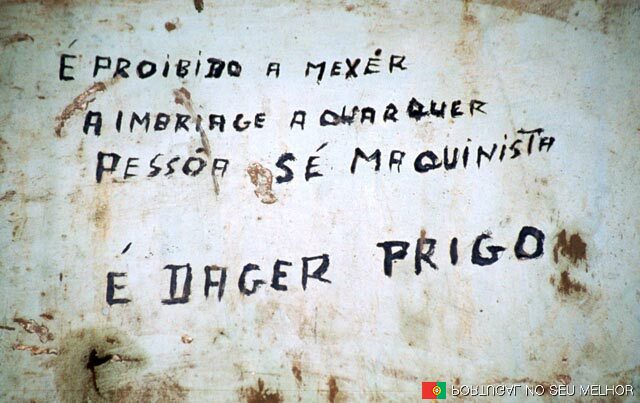 É PROIBIDO A MEXÉR
A IMBRIAGE A QUARQUER
PESSÓA SÉ MAQUINISTA
É DAGER PRIGO
PORTUGAL NO SEU MELHOR